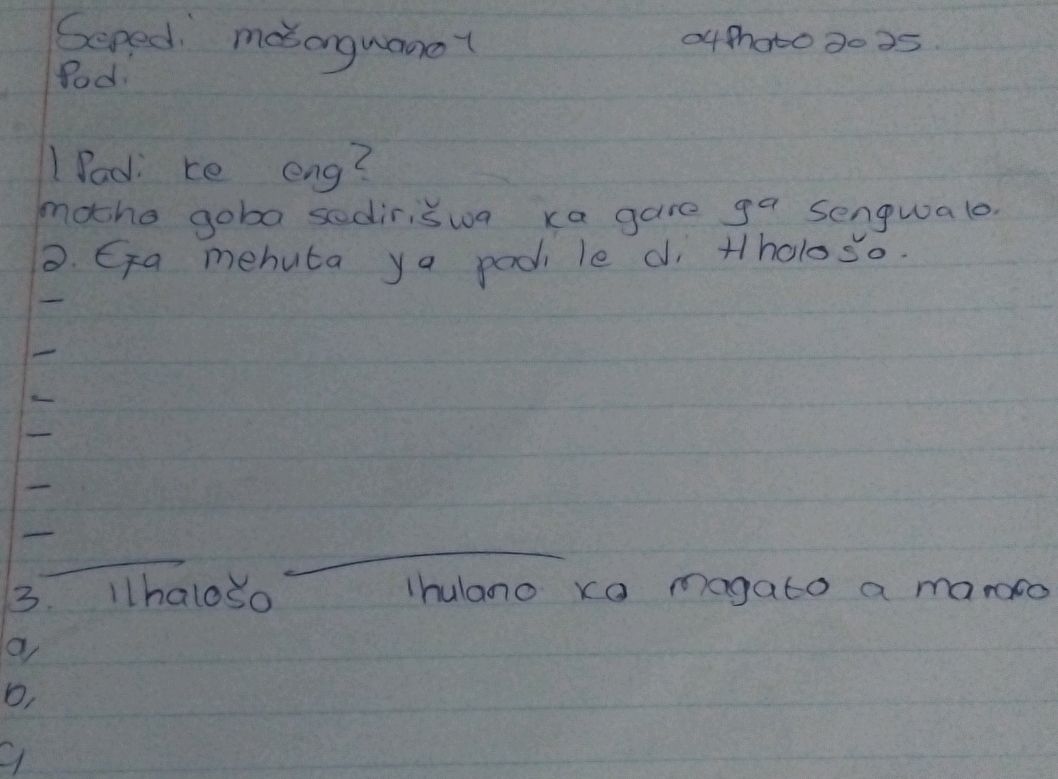 Sepedi mošongwano 1 04 Phato 2025.
Padi
1 Padi ke eng?
motho goba sedirišwa ka gare ga sengwalo.
2. Efa mehuta ya padi le di tlhalošo.
-
-
-
-
-
-
3. Tlhalošo thulano ka magato a mararo
a,
b,
c,